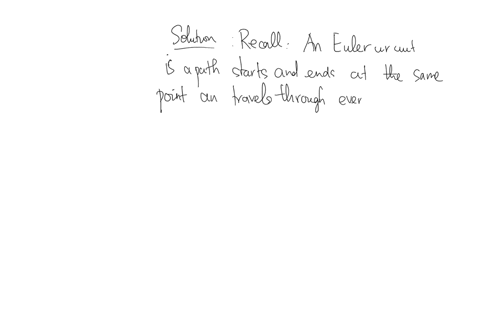 Solution : Recall : An Euler circuit
is a path starts and ends at the same
point an travels through ever